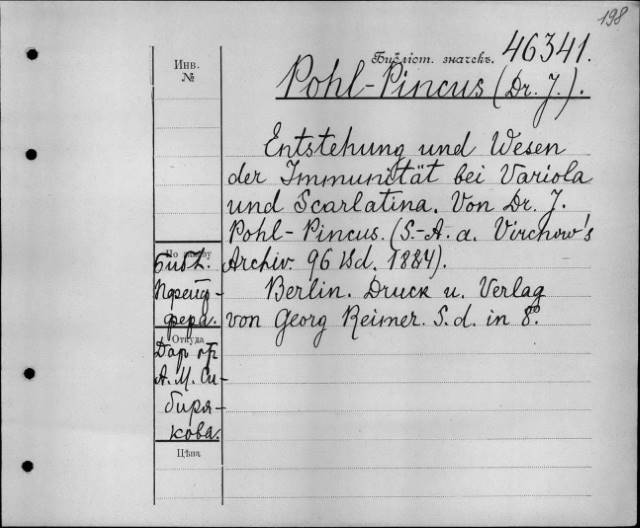 198
Инв.
№
Библіот. значекъ. 46341.
Pohl-Pincus (Dr. J.).
Entstehung und Wesen
der Immunität bei Variola
und Scarlatina. Von Dr. J.
Pohl-Pincus. (S.-A. a. Virchow's
Archiv. 96 Bd. 1884).
Berlin. Druck u. Verlag
von Georg Reimer. S. d. in 8°.
Библ.
Пфейф-
фера.
Откуда
Дар от
А. М. Си-
биря-
кова.
Цѣна